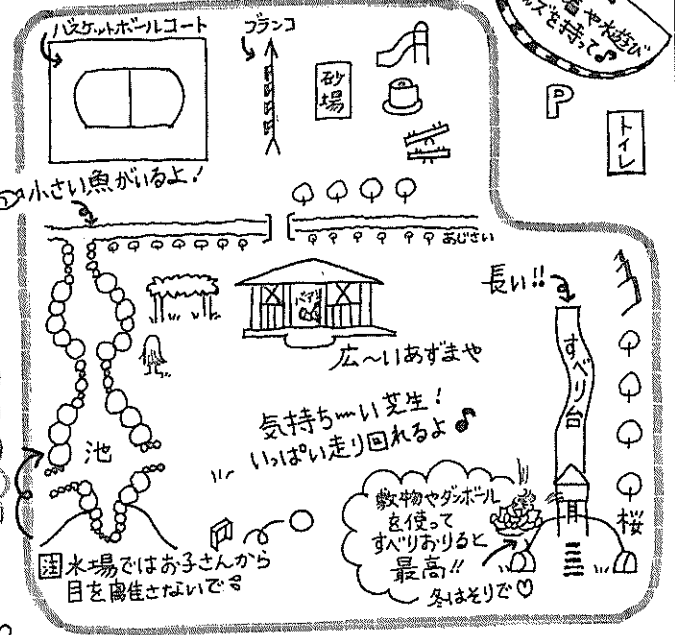 バスケットボールコート
ブランコ
砂場
着や水遊び
ッズを持って♪
P
トイレ
小さい魚がいるよ!
あじさい
長い!!
すべり台
広〜いあずまや
気持ちーい芝生!
いっぱい走り回れるよ♪
池
敷物やダンボール
を使って
すべりおりると
最高!!
冬はそりで♡
桜
注 水場ではお子さんから
目を離さないで